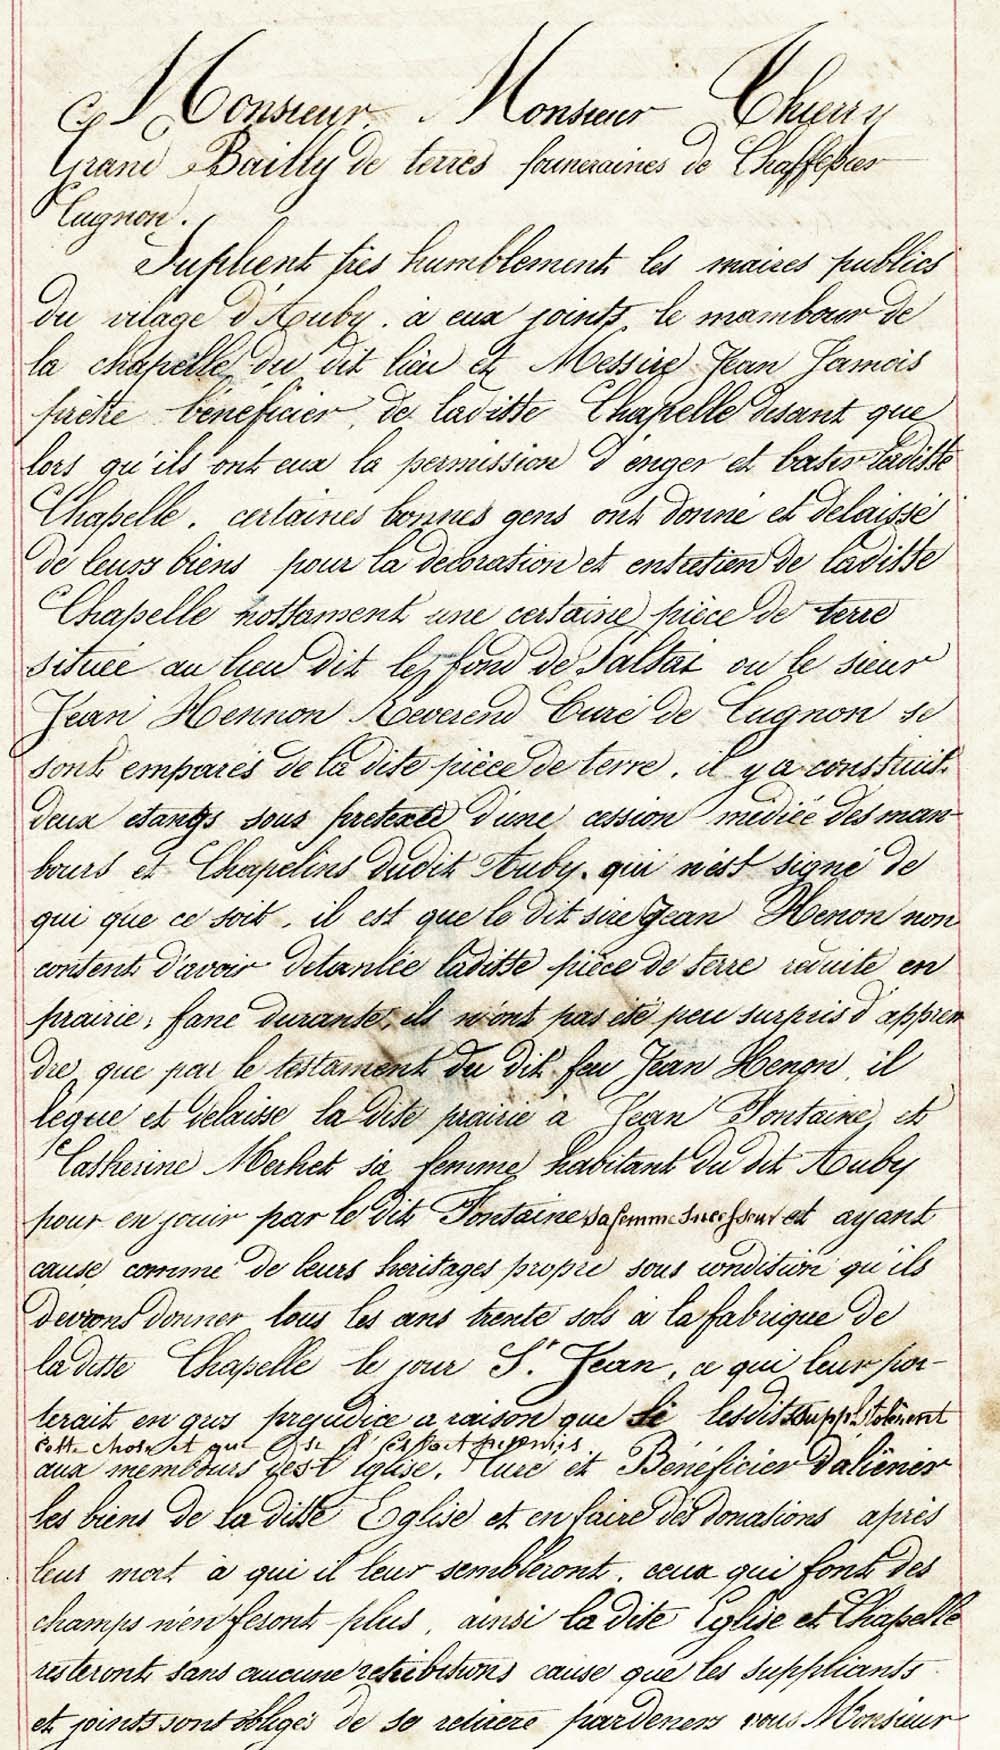 A Monsieur Monsieur Thierry
Grand Bailly de terres souveraines de Chassepier
Cugnon.
Suplient très humblement les maires publics
du vilage d'Auby. à eux joints, le mambour de
la chapelle du dit lieu et Messire Jean Jamois
prêtre bénéficier de laditte Chapelle disant que
lors qu'ils ont eux la permission d'eriger et batir laditte
Chapelle. certaines bonnes gens ont donné et délaissé
de leurs biens pour la decoration et entretien de laditte
Chapelle nottament une certaine pièce de terre
située au lieu dit le fond de Saltai ou le sieur
Jean Hennon Reverend Curé de Cugnon se
sont emparés de la dite pièce de terre. il y a construit
deux etangs sous pretexte d'une cession médiée des man-
bours et Chapelins dudit Auby. qui n'est signé de
qui que ce soit. il est que le dit sire Jean Henon non
content d'avoir laditte pièce de terre réduite en
prairie, durante, ils n'ont pas été peu surpris d'appren
dre que par le testament du dit feu Jean Henon, il
lègue et delaisse la dite prairie à Jean Fontaine et
Catherine Merhet sa femme habitant du dit Auby
pour en jouir par le dit Fontaine sa femme successeur et ayant
cause comme de leurs heritages propre sous condition qu'ils
devrons donner tous les ans trente sols à la fabrique de
la ditte Chapelle le jour St. Jean, ce qui leur por-
terait en gros prejudice a raison que si lesdits supp. tolèrent
cette chose et que permis
aux membours Eglise, Curé et Bénéficier d'aliéner
les biens de la ditte Eglise et en faire des donations après
leur mort à qui il leur sembleront. ceux qui font des
champs n'en feront plus, ainsi la dite Eglise et Chapelle
resteront sans aucune retributions cause que les suppliants
et joints sont obligés de se retirere pardevers vous Monsieur